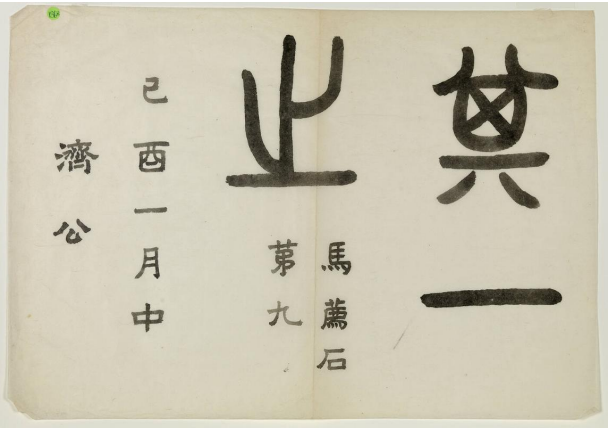 其一
之
馬薦石
第九
己酉一月中
濟公